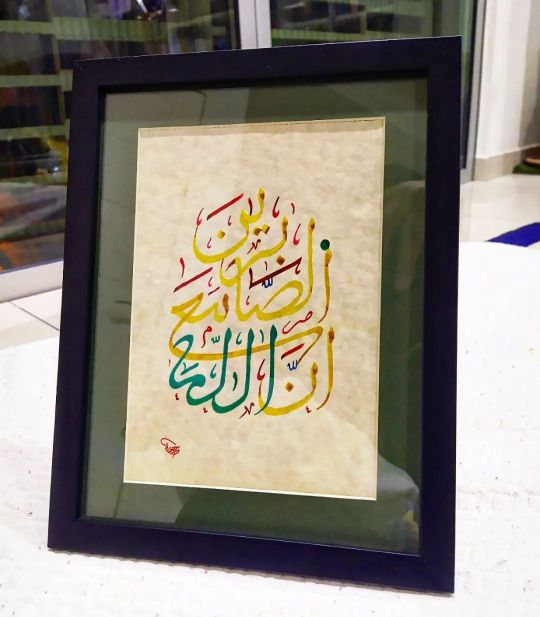 إنَّ اللّٰه مع الصَّابرين